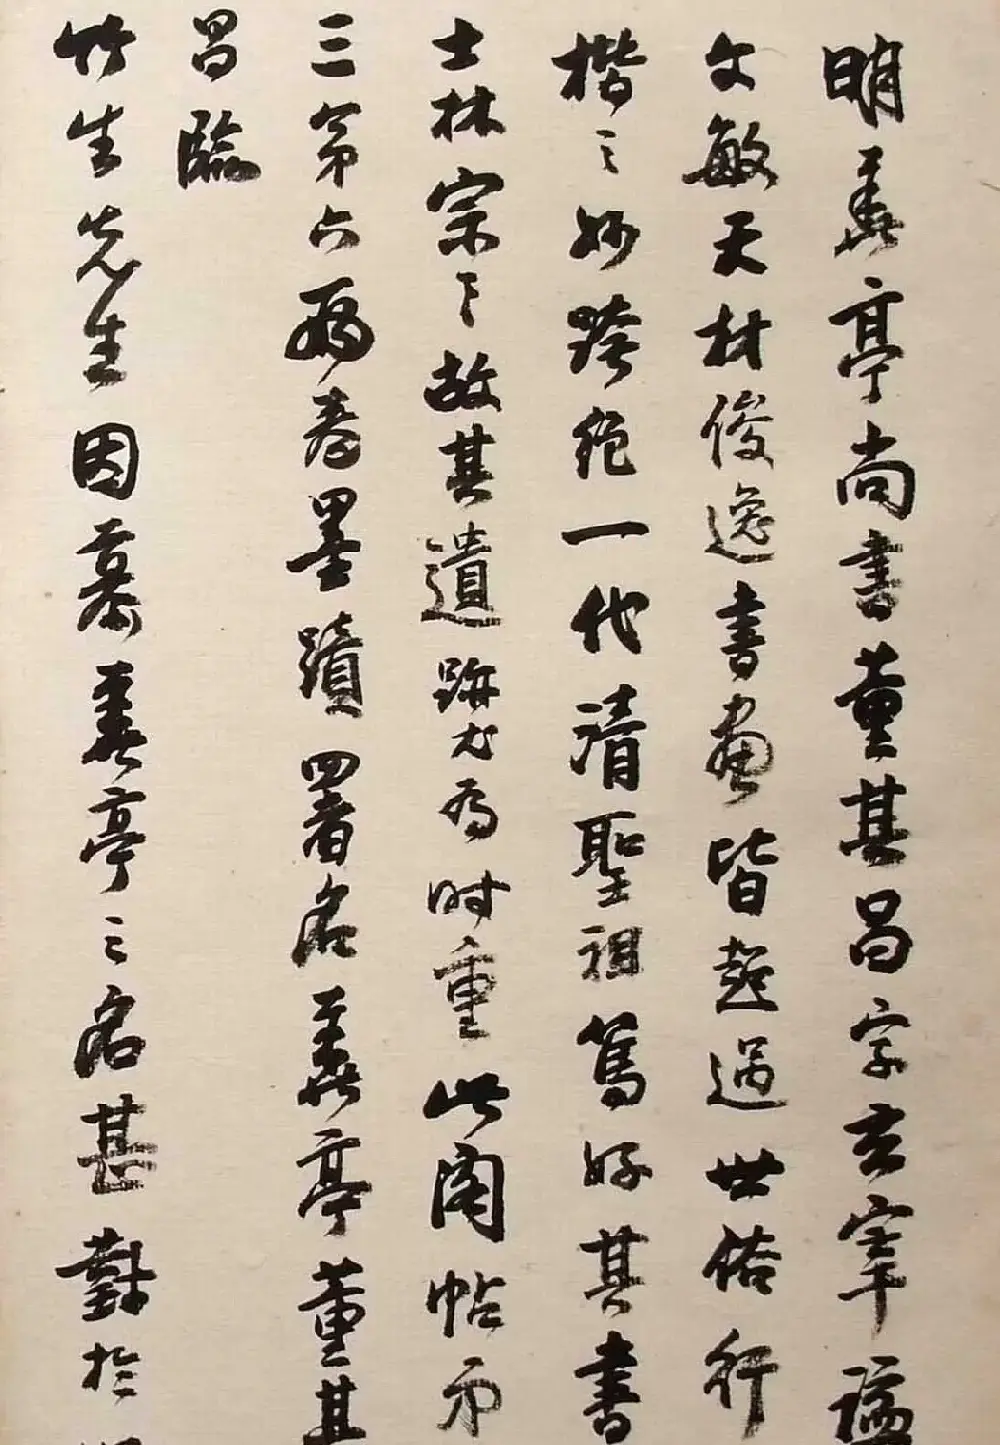 明華亭尚書董其昌字玄宰謚
文敏天材俊逸書畫皆超過世俗行
楷之妙跨絕一代清聖祖篤好其書
士林宗之故其遺跡尤為時重此閣帖
三第六為卷墨蹟署名華亭董其
昌臨
竹生先生因慕華亭之名甚對於